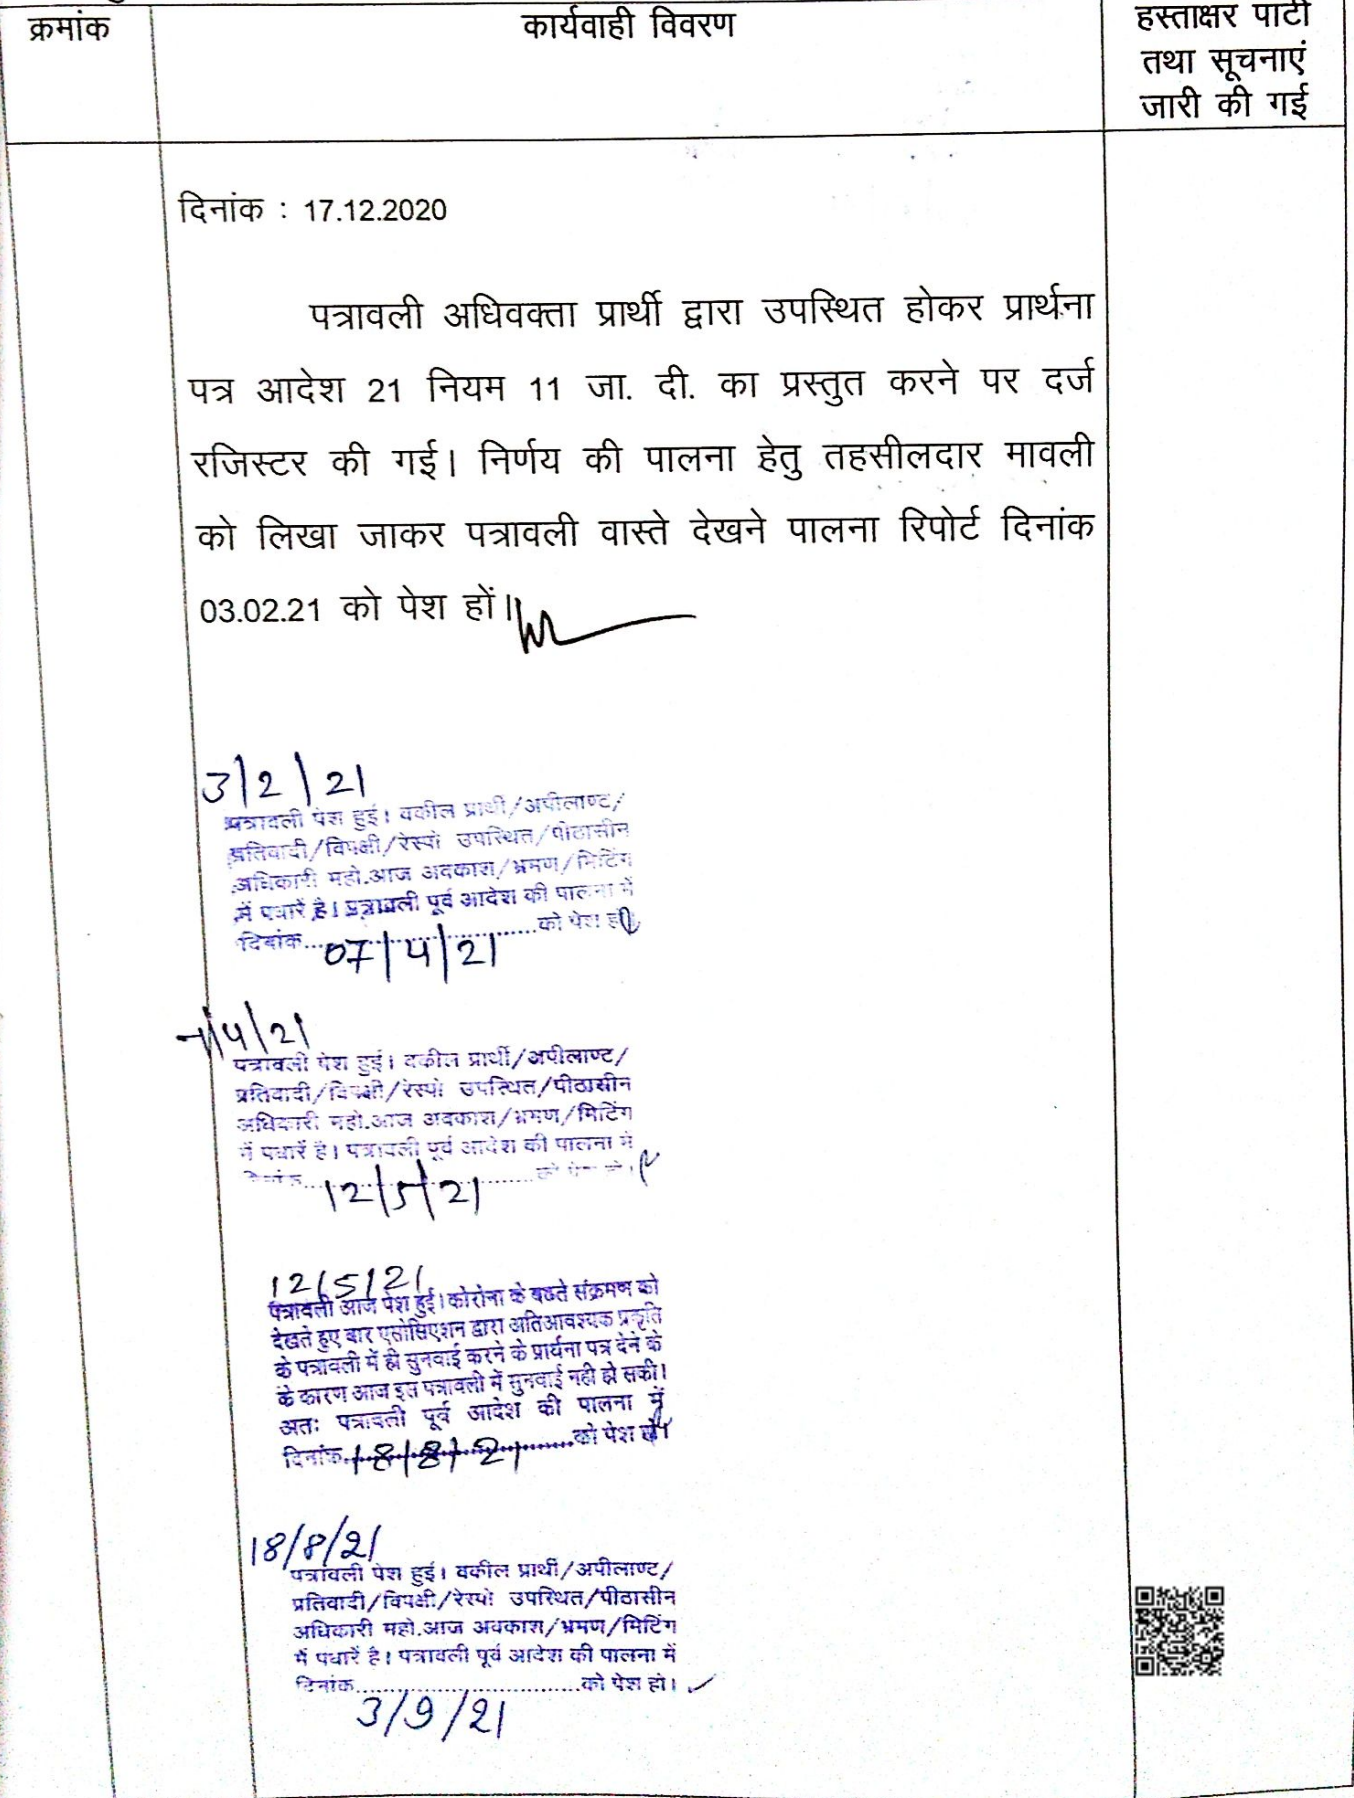 क्रमांक
कार्यवाही विवरण
हस्ताक्षर पार्टी
तथा सूचनाएं
जारी की गई
दिनांक : 17.12.2020
पत्रावली अधिवक्ता प्रार्थी द्वारा उपस्थित होकर प्रार्थना
पत्र आदेश 21 नियम 11 जा. दी. का प्रस्तुत करने पर दर्ज
रजिस्टर की गई। निर्णय की पालना हेतु तहसीलदार मावली
को लिखा जाकर पत्रावली वास्ते देखने पालना रिपोर्ट दिनांक
03.02.21 को पेश हों।
3/2/21
पत्रावली पेश हुई। वकील प्रार्थी/अपीलाण्ट/
प्रतिवादी/विपक्षी/रेस्पो उपस्थित/पीठासीन
अधिकारी महो.आज अवकाश/भ्रमण/मिटिंग
में पधारें है। पत्रावली पूर्व आदेश की पालना में
दिनांक..............................को पेश हो
07/4/21
7/4/21
पत्रावली पेश हुई। वकील प्रार्थी/अपीलाण्ट/
प्रतिवादी/विपक्षी/रेस्पो उपस्थित/पीठासीन
अधिकारी महो.आज अवकाश/भ्रमण/मिटिंग
में पधारें है। पत्रावली पूर्व आदेश की पालना में
दिनांक..............................को पेश हो।
12/5/21
12/5/21
पत्रावली आज पेश हुई। कोरोना के बढते संक्रमण को
देखते हुए बार एसोसिएशन द्वारा अतिआवश्यक प्रकृति
के पत्रावली में ही सुनवाई करने के प्रार्थना पत्र देने के
के कारण आज इस पत्रावली में सुनवाई नही हो सकी।
अतः पत्रावली पूर्व आदेश की पालना में
दिनांक..............................को पेश हो।
18/8/21
18/8/21
पत्रावली पेश हुई। वकील प्रार्थी/अपीलाण्ट/
प्रतिवादी/विपक्षी/रेस्पो उपस्थित/पीठासीन
अधिकारी महो.आज अवकाश/भ्रमण/मिटिंग
में पधारें है। पत्रावली पूर्व आदेश की पालना में
दिनांक..............................को पेश हो।
3/9/21